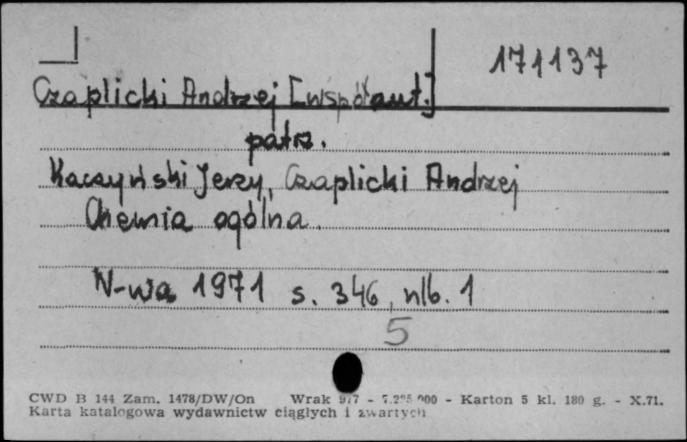 171137
Czaplicki Andrzej [współaut.]
patrz.
Kaczyński Jerzy, Czaplicki Andrzej
Chemia ogólna.
W-wa 1971 s. 346, nlb. 1
5
CWD B 144 Zam. 1478/DW/On Wrak - Karton 5 kl. 180 g. - X.71.
Karta katalogowa wydawnictw ciągłych i zwartych